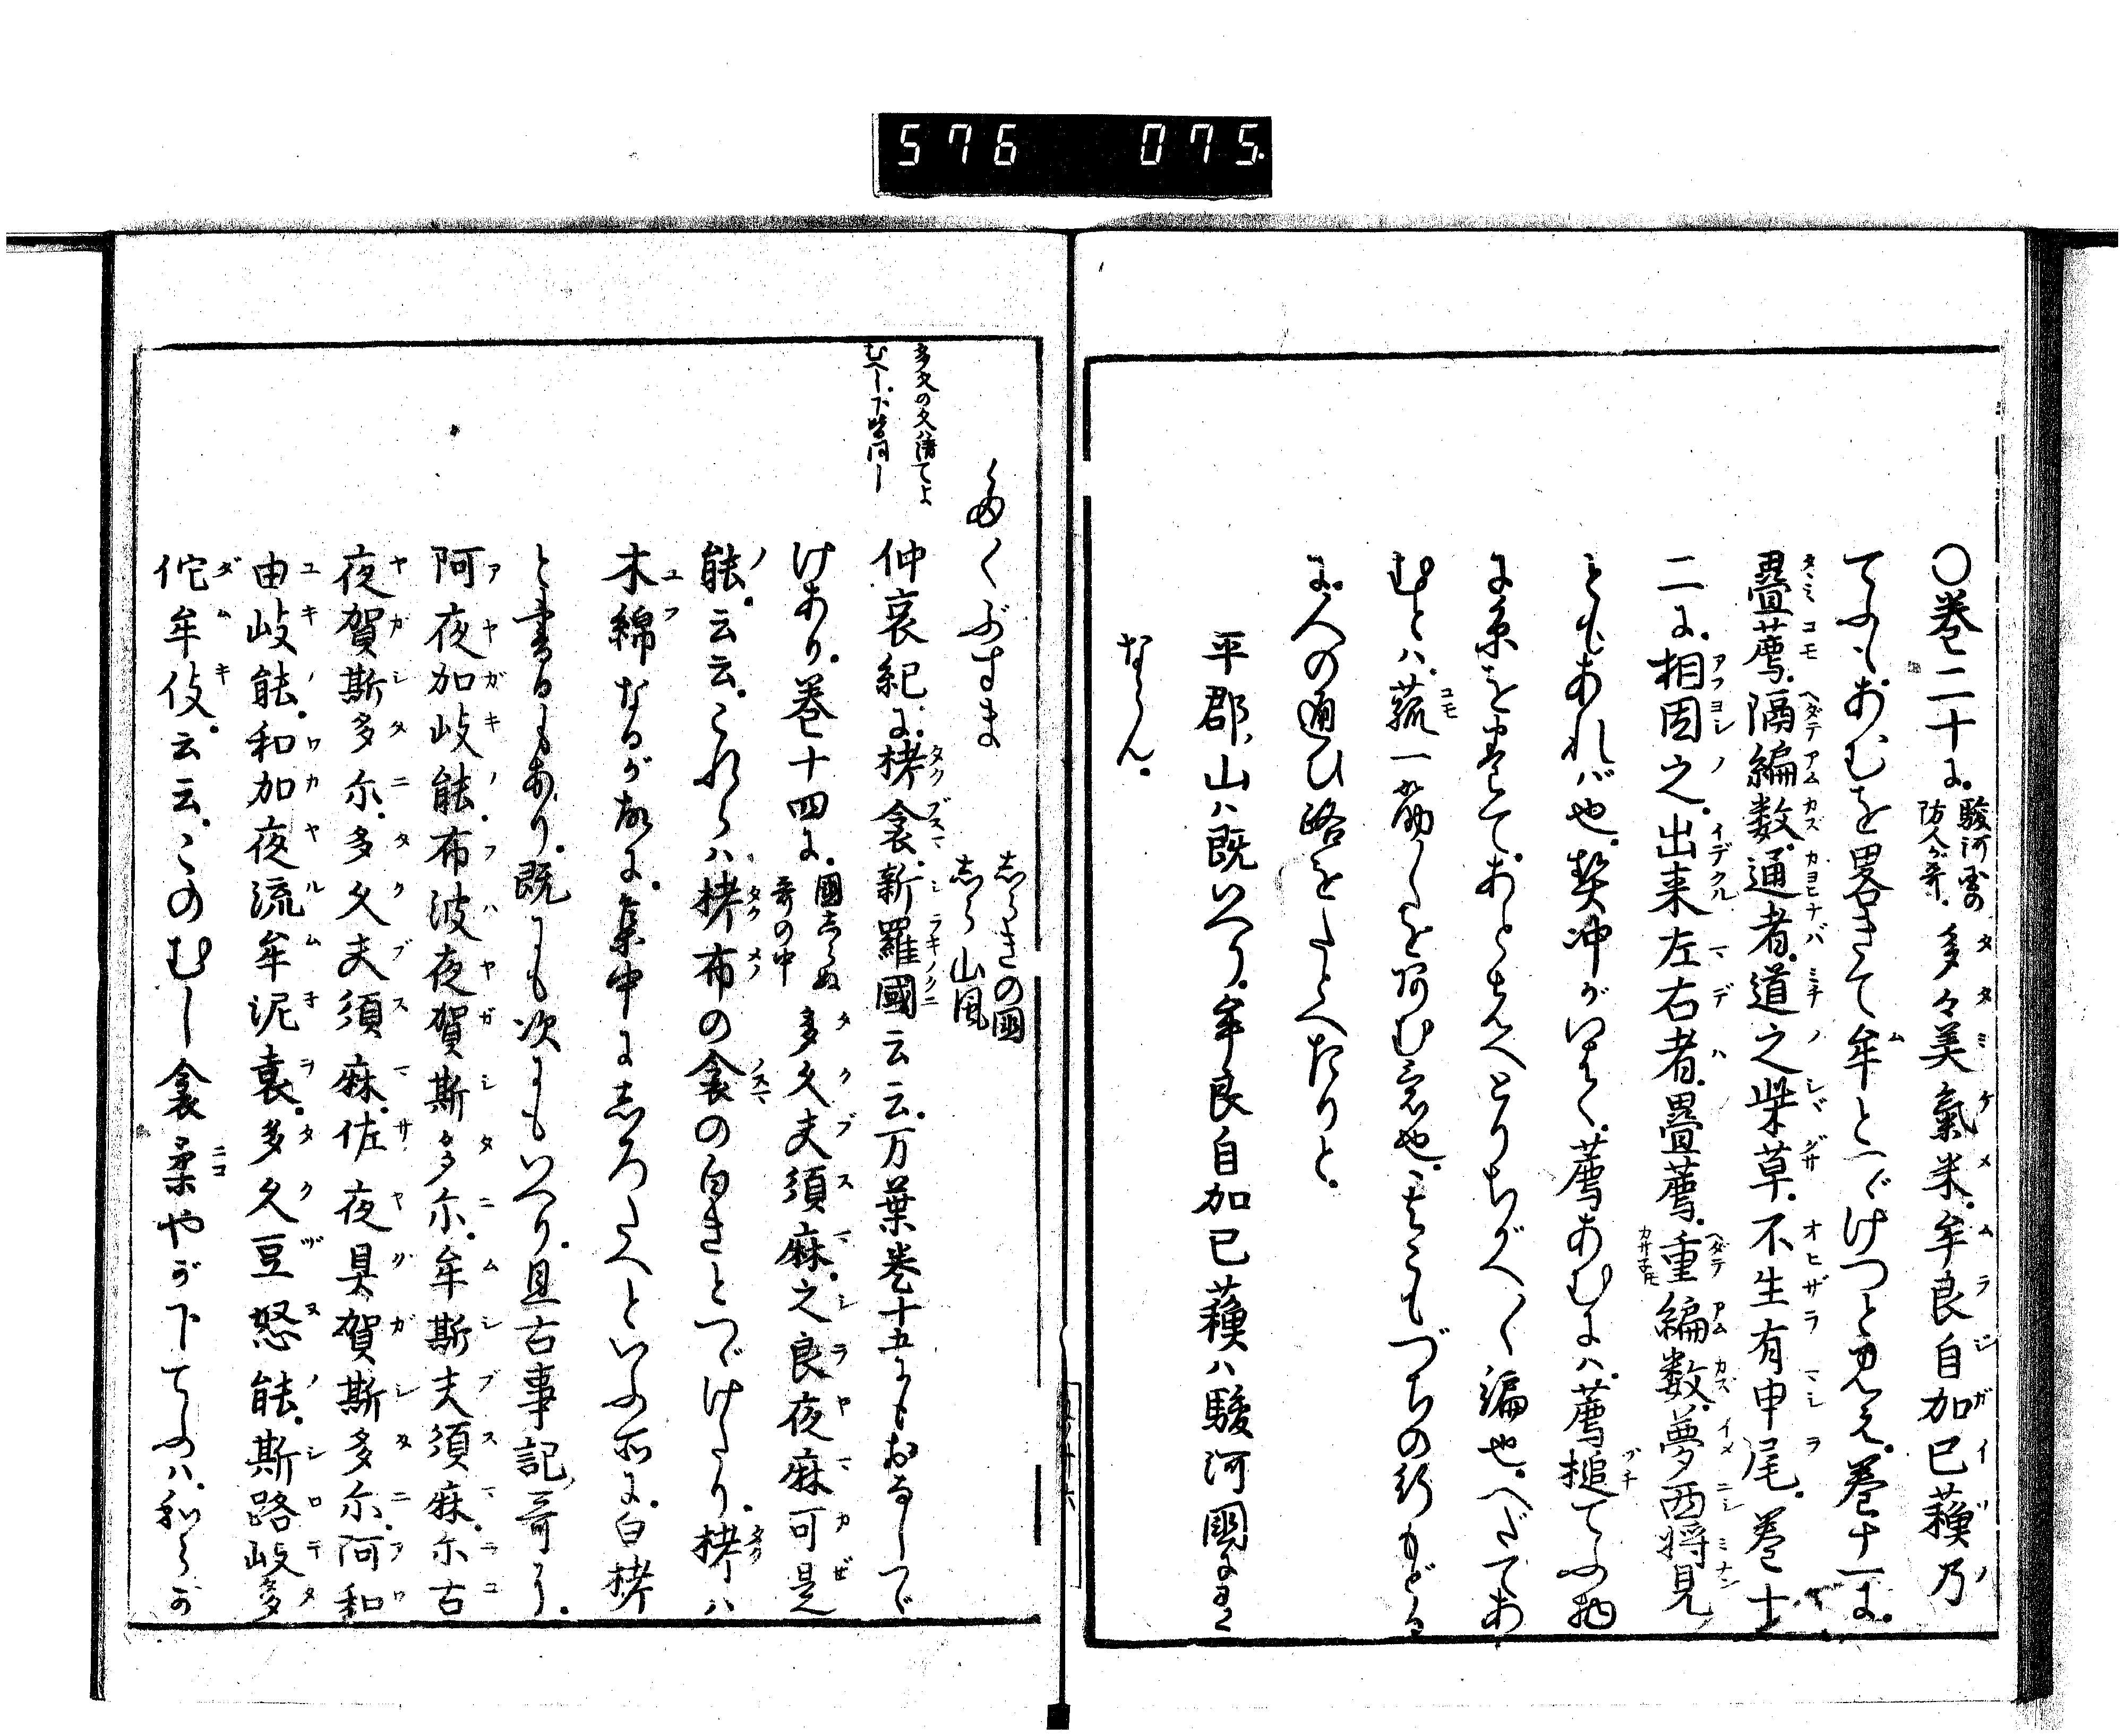 576 075.
〇巻二十に。駿河国の防人が哥。多々美氣米。牟良自加已蘓乃
てふも。あむを畧きて牟とつゞけつと見え。巻十一に。
疊薦。隔編数。通者。道之柴草。不生有申尾。巻十
二に。相因之。出来左右者。疊薦。重編数。夢西将見
ともあれバ也。契冲がいはく。薦あむにハ。薦槌てふ物
に糸を巻て。あとさへとりちがへ〳〵編也。へだてあ
むとハ。菰一筋〳〵を阿む意也。こもづちの行もどる
に。人の通ひ路をたとへたりと。
平郡山ハ既いへり。牟良自加已蘓ハ駿河國にある
ならん。
多久の久ハ清てよ
むべし。下皆同し
多くぶすま
志らきの國
志ら山風
仲哀紀に。栲衾。新羅國云云。万葉巻十五にもおなじつゞ
けあり。巻十四に。國志らぬ哥の中 多久夫須麻。之良夜麻可是
能。云云。これらハ栲布の衾の白きとつゞけたり。栲ハ
木綿なるが故に。集中に志ろたへといふ所に。白栲
と書るもあり。既にも次にもいへり。且古事記哥に。
阿夜加岐能。布波夜賀斯多尓。牟斯夫須麻。尓古
夜賀斯多尓。多久夫須麻。佐夜具賀斯多尓。阿和
由岐能。和加夜流牟泥袁。多久豆怒能。斯路岐多
佗牟伎。云云。このむし衾柔やが下てふハ。和らか